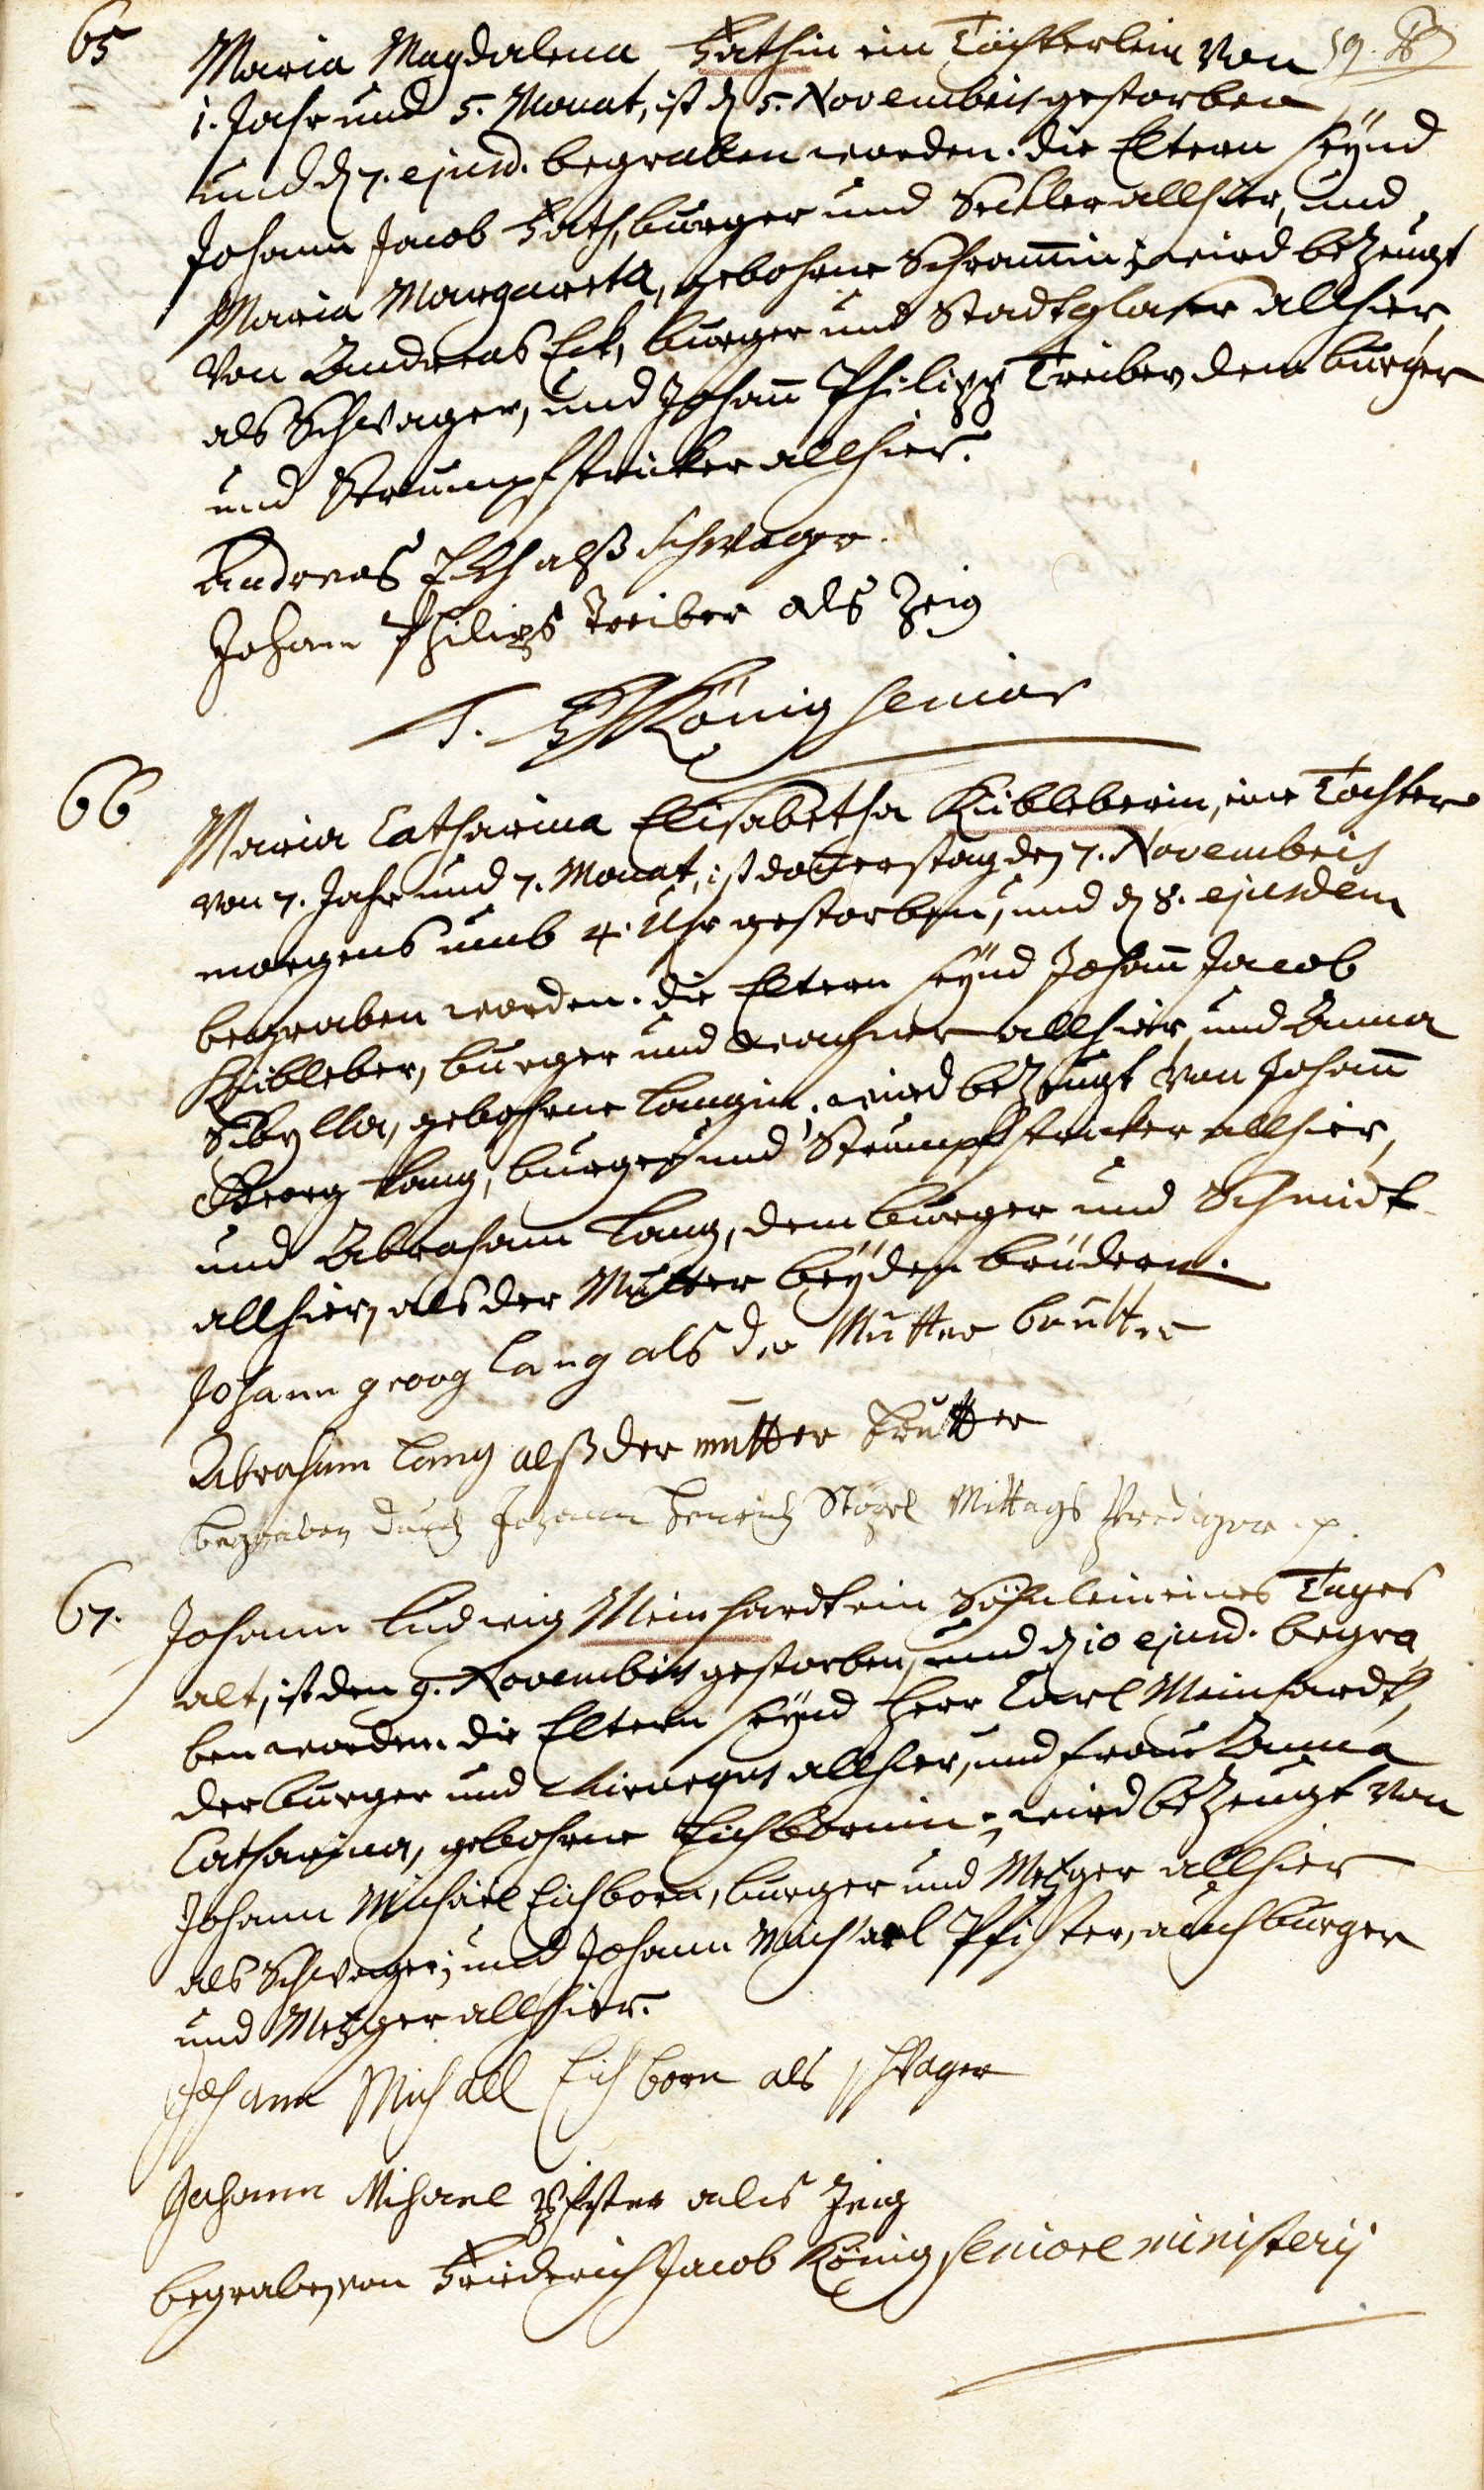 65 Maria Magdalena Fathin ein Töchterlein von 59.
1. Jahr und 5. Monat, ist d 5. Novembris gestorben
und d 7. ejusd. begraben worden. die Eltern seÿnd
Johann Jacob Fath, burger und Seckler allhier, und
Maria Margareta, gebohrne Schramin; wird bezeugt
von Andreas Eck, burger und Stadtglaser allhier,
als Schwager, und Johañ Philipp Treiber dem burger
und Strumpfstricker allhier.
Andreas Eckh alß schwager.
Johann Philips Treiber als Zeig
König senior
66 Maria Catharina Elisabetha Kübleberin, eine Tochter
von 7. Jahr und 7. Monat, ist doñerstag den 7. Novembris
morgens umb 4. Uhr gestorben, und d 8. ejusdem
begraben worden. die Eltern seÿnd Johañ Jacob
Kübleber, burger und allhier, und Anna
Sibylla, gebohrne Langin. wird bezeugt von Johañ
Georg Lang, burger und Strumpfstricker allhier,
und Abraham Lang, dem burger und Schmidt
allhier, als der Mutter beÿden brüdern.
Johann georg Lang als der Mutter brutter
Abraham Lang alß der mutter brutter
begraben durch Johann Henrich Mittags Prediger
67. Johann Ludwig Meinhardt ein Söhnlein eines Tages
alt, ist den 9. Novembris gestorben, und d 10 ejusd. begra
ben worden. die Eltern seÿnd Herr Carl Meinhardt,
der burger und Chirurgus allhier, und Frau Anna
Catharina, gebohrne Eichbornin; wird bezeugt von
Johann Michael Eichborn, burger und Metzger allhier
als Schwager; und Johann Michael Pfister, auch burger
und Metzger allhier.
Johann Michael Eichborn als schwager
Johann Mihael Pfister als Zeig
begraben von Friderich Jacob König seniore ministerij